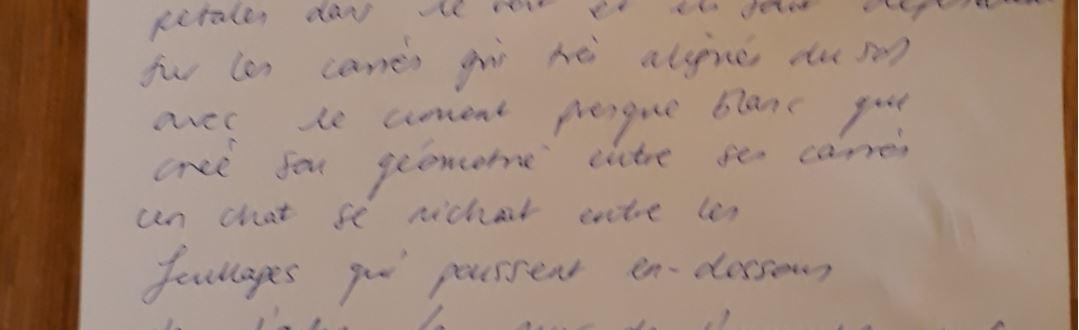 petales dans le vent et
sur les carrés gris très alignés du sol
avec le ciment presque blanc que
creé son géometrie entre ses carrés
un chat se nichait entre les
feuillages qui poussent en-dessous